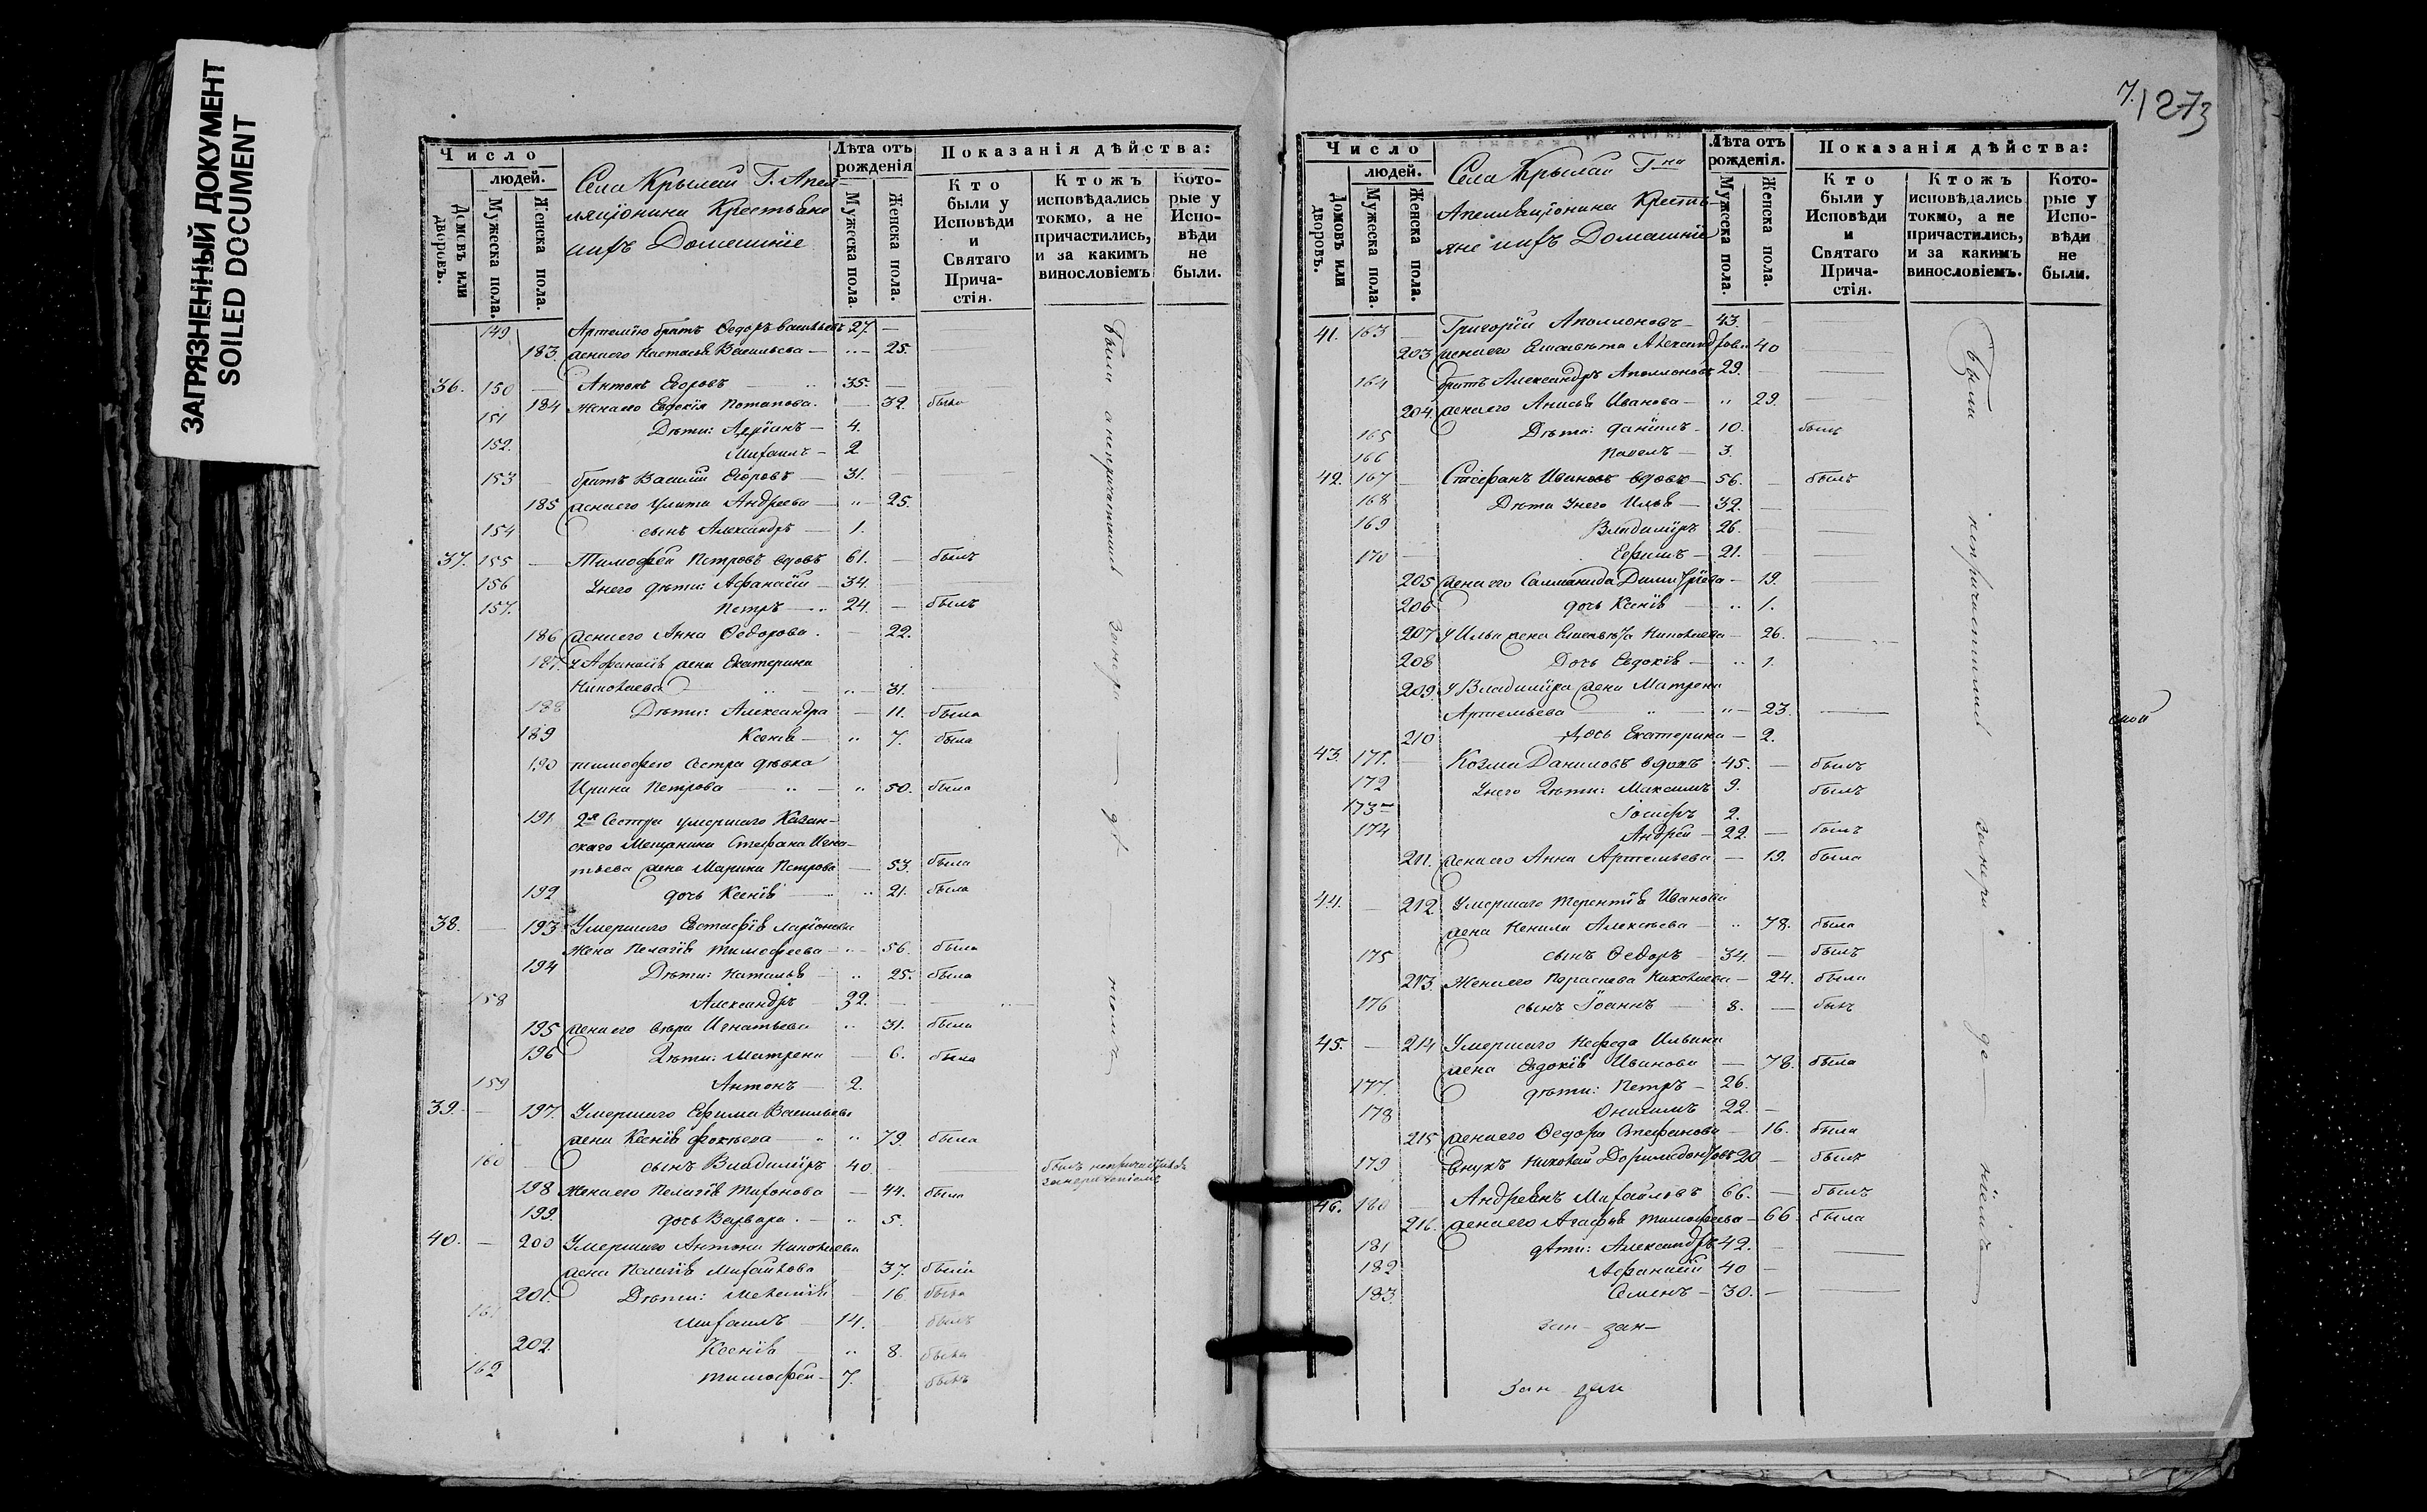 ЗАГРЯЗНЕННЫЙ ДОКУМЕНТ
SOILED DOCUMENT
Число
людей.
Домовъ или дворовъ.
Мужеска пола.
Женска пола.
Села Крылай Г. Апел-
ляціонина Крестьяне
ихъ Домашніе
Лѣта отъ рожденія
Мужеска пола.
Женска пола.
Показанія дѣйства:
Кто были у Исповѣди и Святаго Причастія.
Ктожъ исповѣдались токмо, а не причастились, и за какимъ винословіемъ
Которые у Исповѣди не были.
149 Артемію братъ Ѳедоръ Васильевъ 27 —
183. жена его Настасья Васильева — 25.
36. 150 — Антонъ Егоровъ 35. —
184 жена его Евдокія Потапова. — 32. была
151 Дѣти: Адріанъ — 4.
152. Михаилъ — 2
153 братъ Василій Егоровъ — 31.
185 жена его Улита Андреева — 25.
154 сынъ Александръ — 1.
37. 155 — Тимофей Петровъ вдовъ 61. — былъ
156 У него дѣти: Афанасій — 34.
157. Петръ — 24. — былъ
186 жена его Анна Ѳедорова. — 22.
187. у Афанасія жена Екатерина
Николаева — 31.
188 Дѣти: Александра — 11. была
189 Ксенія — 7. была
190 тимофею сестра дѣвка
Ирина Петрова — 50. была
191 2я Сестра умершаго Казан-
скаго Мещанина Стефана Игна-
тьева жена Марина Петрова — 53. была
192 дочь Ксенія — 21. была
38. — 193 Умершаго Евстафія Ларіонова
жена Пелагія Тимофеева — 56. была
194 Дѣти: Наталья 25. была
158 Александръ 32. —
195 жена его Вѣра Игнатьева 31. была
196 Дѣти: Матрена — 6. была
159 Антонъ — 2.
39. — 197. Умершаго Ефима Васильева
жена Ксенія Фокѣева — 79. была
160 сынъ Владиміръ 40 былъ
198 Жена его Пелагія Тихонова — 44. была
199. дочь Варвара. — 5.
40. — 200 Умершаго Антона Николаева
жена Пелагія Михайлова 37. была
201. Дѣти: — 16 была
161. Михаилъ — 14. былъ
202. Ксенія 8. была
162 Тимофей — 7. былъ
были
7. 1273
Число
людей.
Домовъ или дворовъ.
Мужеска пола.
Женска пола.
Села Крылай Гна
Апелляціонина Кресть-
яне ихъ Домашніе
Лѣта отъ рожденія.
Мужеска пола.
Женска пола.
Показанія дѣйства:
Кто были у Исповѣди и Святаго Причастія.
Ктожъ исповѣдались токмо, а не причастились, и за какимъ винословіемъ.
Которые у Исповѣди не были.
41. 163 — Григорій Аполлоновъ — 43. —
203 жена его Елисавета Александрова 40
164 братъ Александръ Аполлоновъ 29. —
204. жена его Анисья Иванова — 29.
165 Дѣти: Даніилъ — 10. былъ
166 Павелъ — 3.
42. 167 — Стефанъ Ивановъ вдовъ — 56. — былъ
168 Дѣти у него Илья — 32. —
169 Владиміръ 26. —
170 — Ефимъ — 21. —
205 жена его Саломанида Димитріева — 19.
206 дочь Ксенія — 1.
207 у Ильи жена Елисавета Николаева — 26.
208 Дочь Евдокія — 1.
209. у Владиміра жена Матрена
Артемьева — 23.
210 дочь Екатерина — 2.
43. 171. — Козма Даниловъ вдовъ 45. — былъ
172 У него Дѣти: Максимъ 9. былъ
173 Іосифъ 2.
174 Андрей — 22. — былъ
211. жена его Анна Артемьева — 19. была
44. — 212 Умершаго Терентія Иванова
жена Ненила Алексѣева — 78. была
175 сынъ Ѳедоръ 34. — былъ
213. Жена его Параскева Николаева — 24. была
176 сынъ Іоаннъ — 8. — былъ
45. — 214 Умершаго Нефеда Ильина
жена Евдокія Иванова — 78. была
177. дѣти: Петръ — 26.
178 Онисимъ 22. —
215 жена его Ѳедора Стефанова 16. была
179 внукъ Николай Доримедонтовъ 20 — былъ
46. 180 — Андреянъ Михайловъ 66. — былъ
216. жена его Агафья Тимофеева — 66. была
181 дѣти: Александръ 42. —
182 Афанасій 40 —
183. Семенъ — 30. —
были